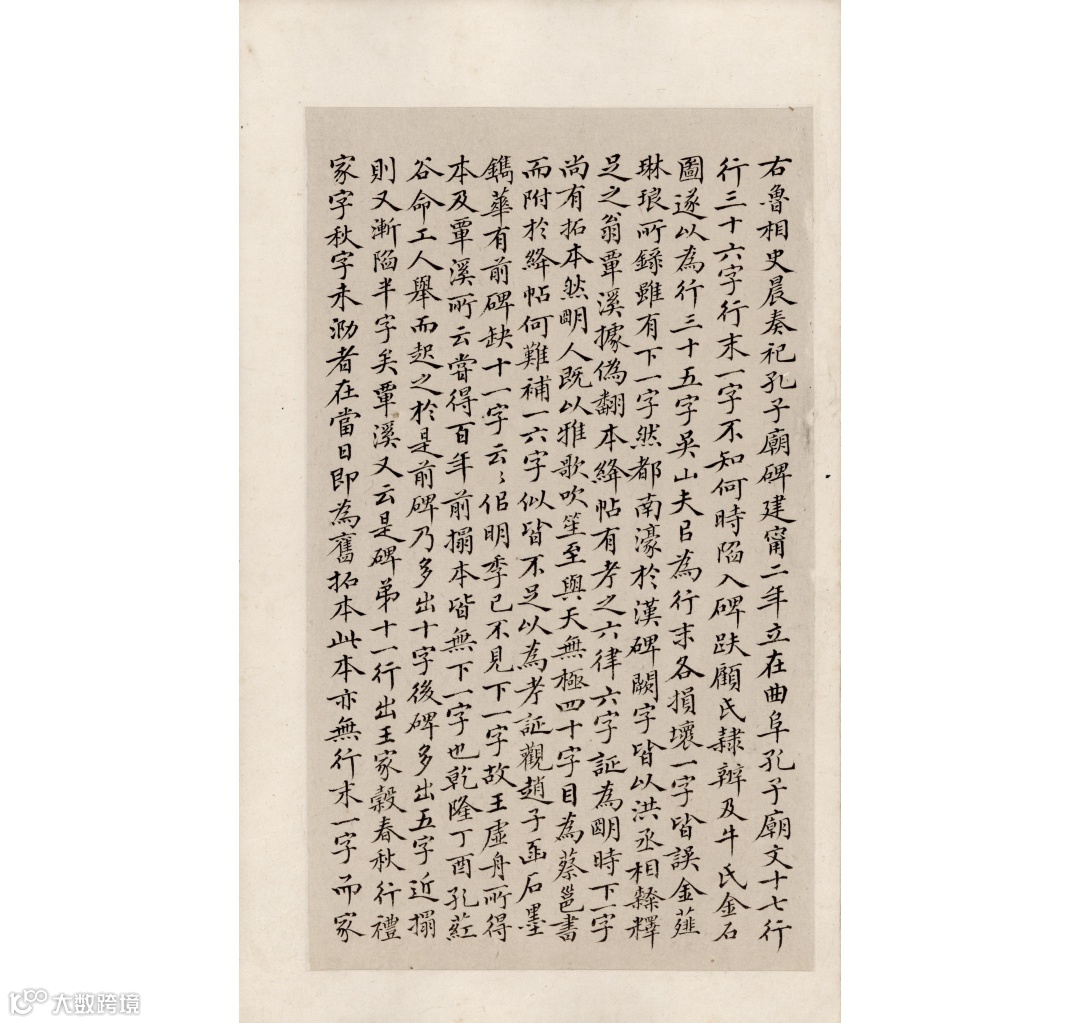 右魯相史晨奏祀孔子廟碑建甯二年立在曲阜孔子廟文十七行
行三十六字行末一字不知何時陷入碑趺顧氏隸辨及牛氏金石
圖遂以為行三十五字吳山夫㠯為行末各損壞一字皆誤金薤
琳琅所錄雖有下一字然都南濠於漢碑闕字皆以洪丞相隸釋
足之翁覃溪據偽翻本絳帖有考之六律六字証為明時下一字
尚有拓本然明人既以雅歌吹笙至與天無極四十字目為蔡邕書
而附於絳帖何難補一六字似皆不足以為考証觀趙子函石墨
鐫華有前碑缺十一字云〻佀明季已不見下一字故王虛舟所得
本及覃溪所云嘗得百年前搨本皆無下一字也乾隆丁酉孔葒
谷命工人舉而起之於是前碑乃多出十字後碑多出五字近搨
則又漸陷半字矣覃溪又云是碑弟十一行出王家穀春秋行禮
家字秋字未泐者在當日即為舊拓本此本亦無行末一字而家
大数跨境